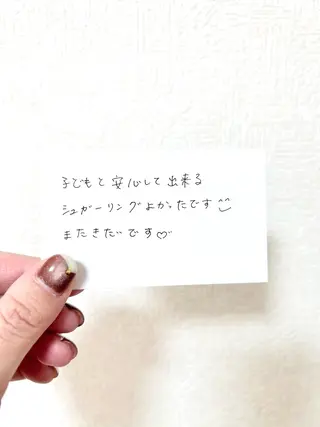 子どもと安心して出来る
シュガーリングよかったです
またきたいです♡